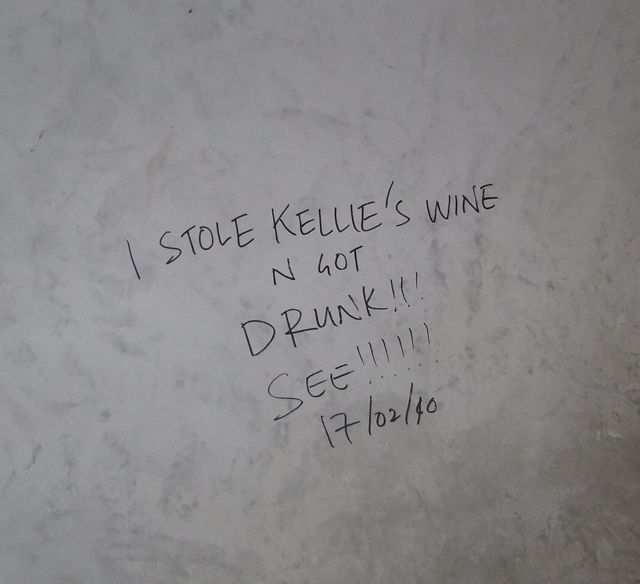 I STOLE KELLIE'S WINE
N GOT
DRUNK!!!
SEE!!!!!!
17/02/40